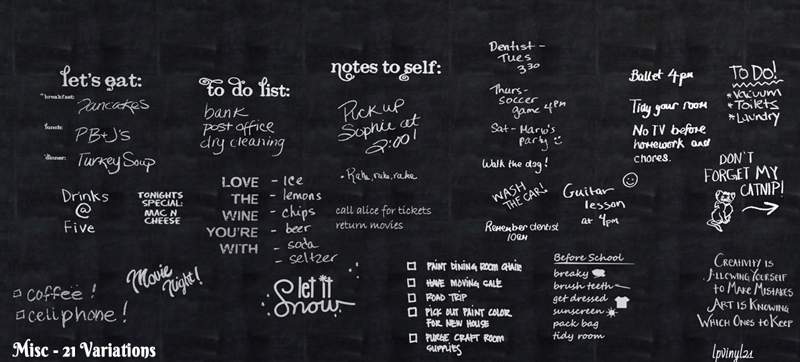 let's eat:
breakfast: Pancakes
lunch: PB+J's
dinner: Turkey Soup
to do list:
bank
post office
dry cleaning
notes to self:
Pick up
Sophie at
2:00!
Dentist -
Tues
3:30
Thurs-
soccer
game 4pm
Sat- Mario's
party
Walk the dog!
Ballet 4pm
Tidy your room
No TV before
homework and
chores.
TO DO!
*Vacuum
*Toilets
*Laundry
Drinks
@
Five
TONIGHTS
SPECIAL:
MAC N
CHEESE
LOVE
THE
WINE
YOU'RE
WITH
- Ice
- lemons
- chips
- beer
- soda
- seltzer
• Rake, rake, rake
call alice for tickets
return movies
WASH
THE CAR!
Remember dentist
10am
Guitar
lesson
at 4pm
DON'T
FORGET MY
CATNIP!
coffee!
cell phone!
Movie
Night!
let it
Snow
PAINT DINING ROOM CHAIR
HAVE MOVING SALE
ROAD TRIP
PICK OUT PAINT COLOR
FOR NEW HOUSE
PURGE CRAFT ROOM
SUPPLIES
Before School
breaky
brush teeth
get dressed
sunscreen
pack bag
tidy room
CREATIVITY IS
ALLOWING YOURSELF
TO MAKE MISTAKES
ART IS KNOWING
WHICH ONES TO KEEP
Misc - 21 Variations
lpvinyl21